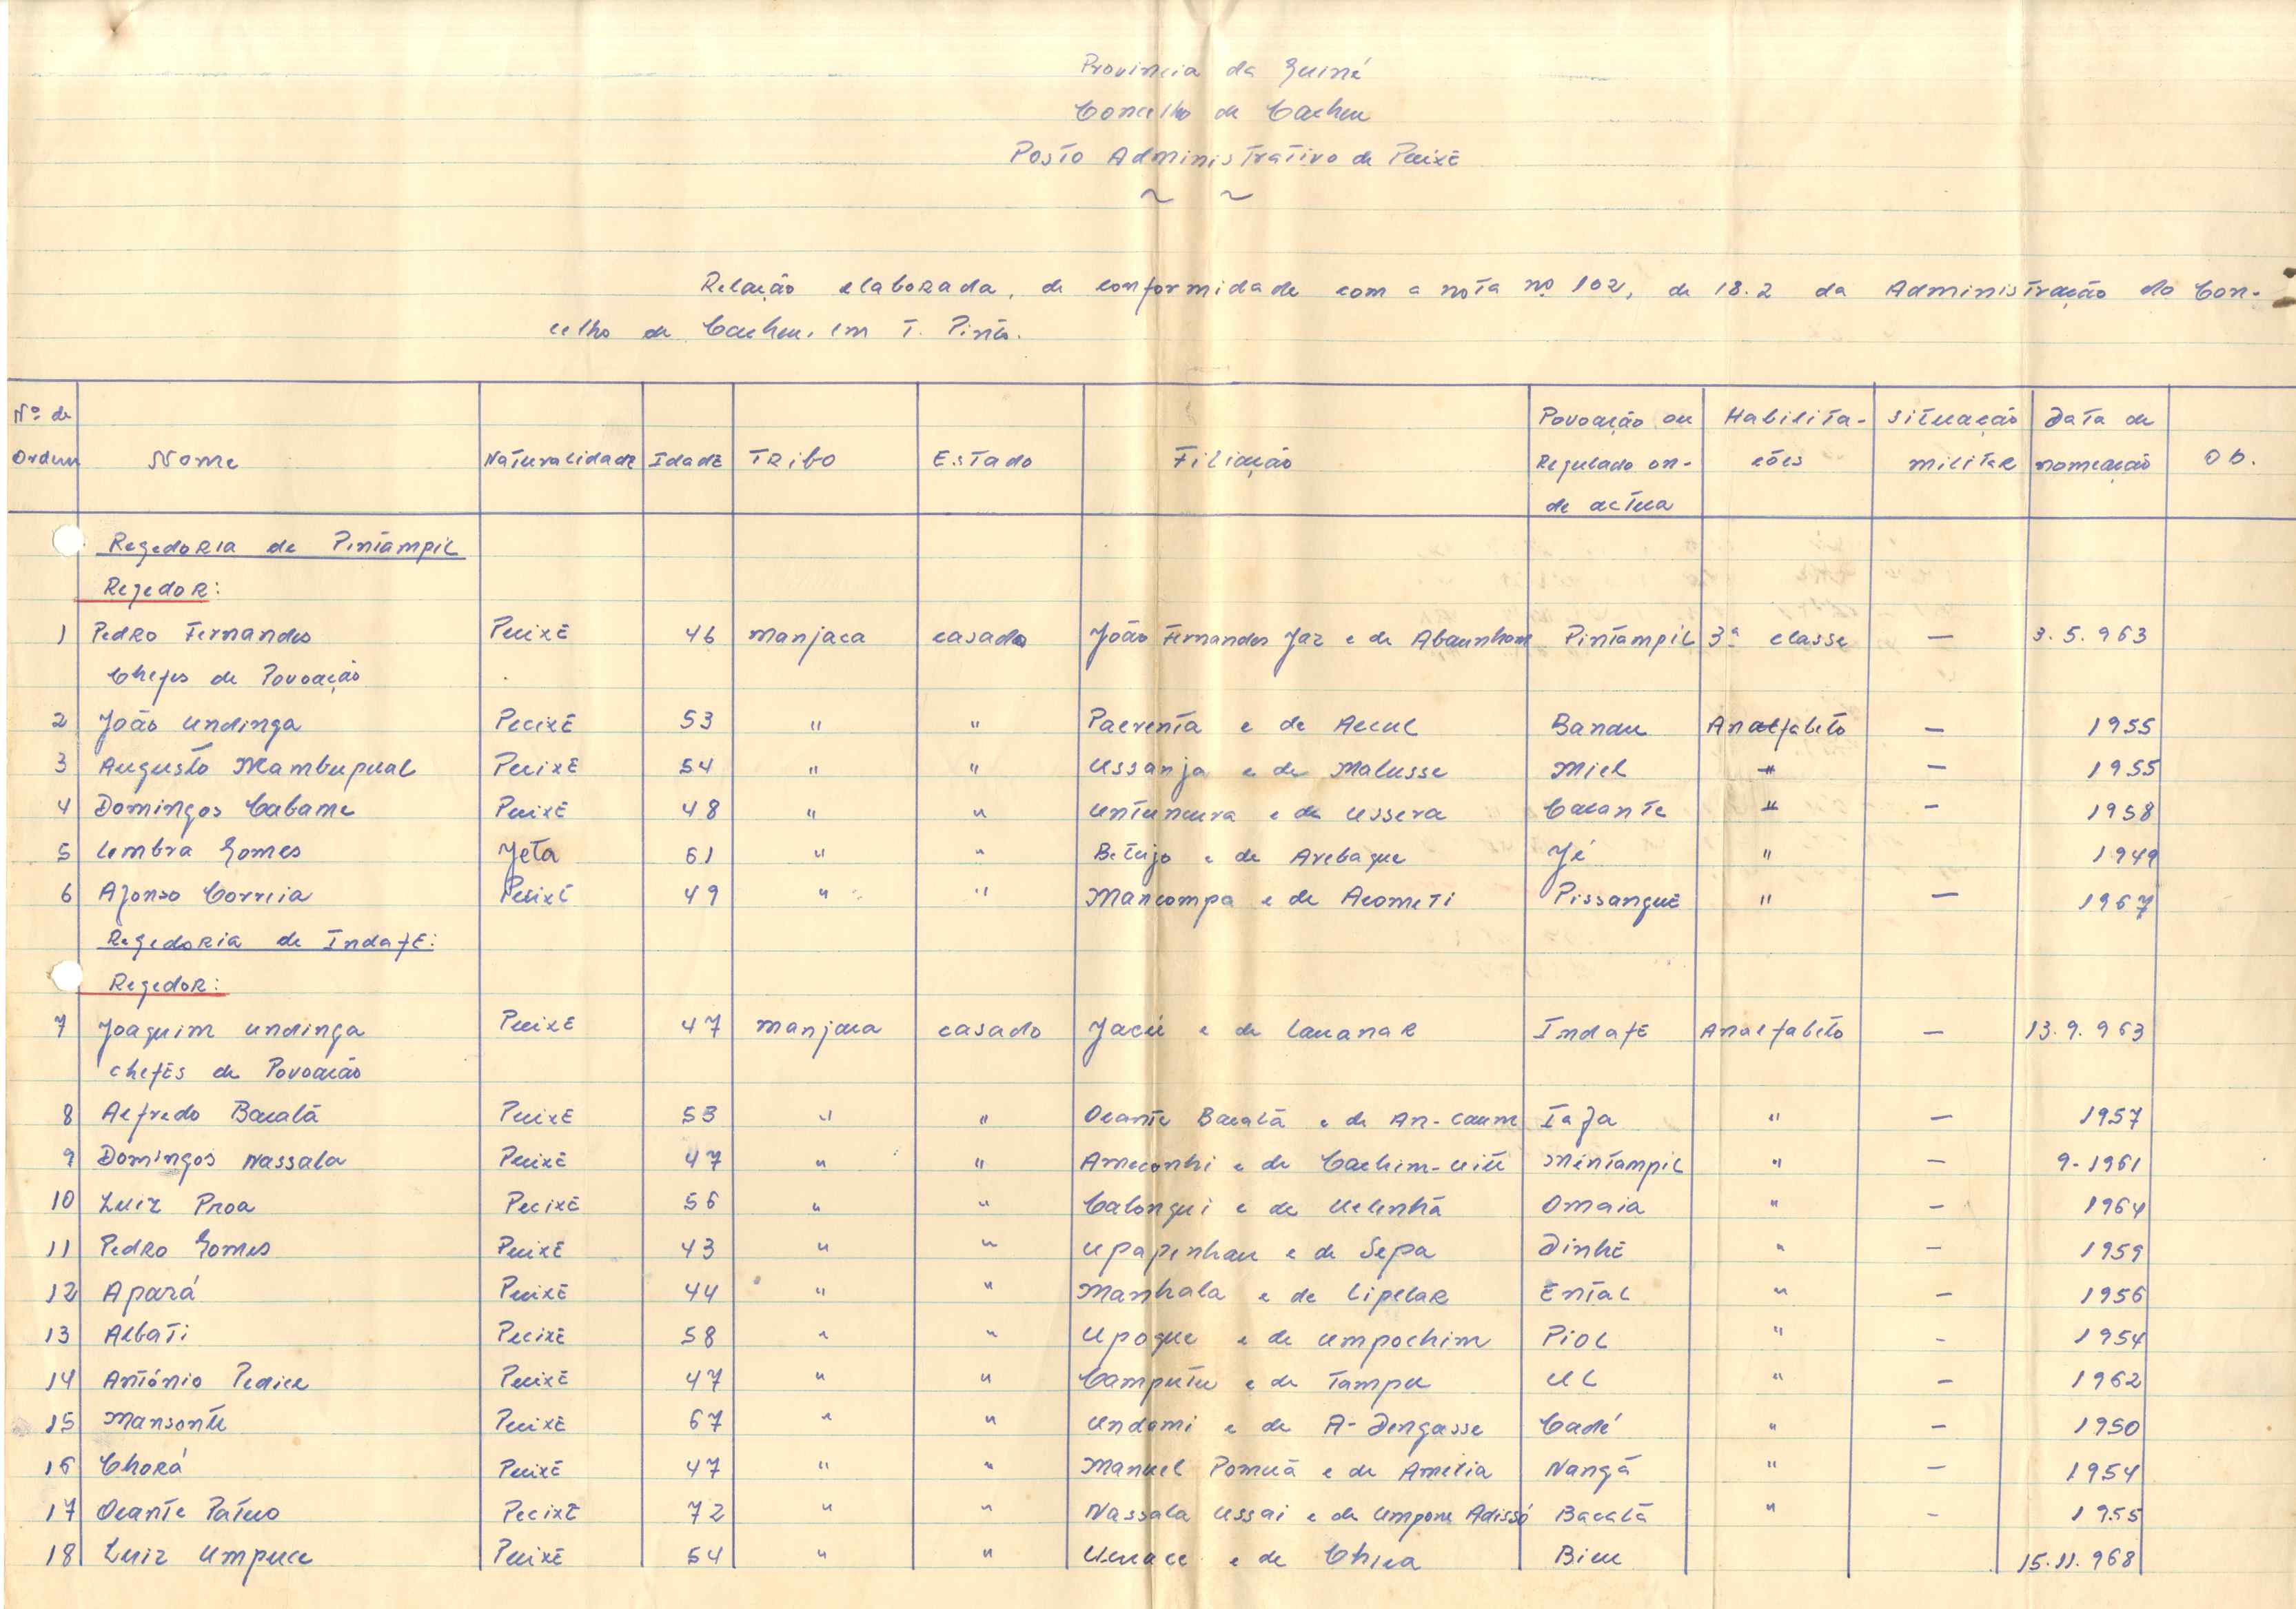 Provincia da Guiné
Concelho de Cacheu
Posto Administrativo de Pecixe
~ ~
Relação elaborada, de conformidade com a nota nº 102, de 18.2 da Administração do Con-
celho de Cacheu, em T. Pinto.
Nº de Ordem | Nome | Naturalidade | Idade | Tribo | Estado | Filiação | Povoação ou Regulado on-de actua | Habilita-ções | Situação militar | Data de nomeação | Ob.
Regedoria de Pintampil
Regedor:
1 Pedro Fernandes Pecixe 46 manjaca casado João Fernandes Jaz e de Pintampil 3ª classe — 3.5.963
Chefes de Povoação
2 João Undinga Pecixe 53 " " Pacrenta e de Accul Bandu Analfabeto — 1955
3 Augusto Mambupual Pecixe 54 " " Ussanja e de Malusse Miel " — 1955
4 Domingos Cabame Pecixe 48 " " Untuncura e de Ussera Caiante " — 1958
5 Umbra Gomes Jeta 61 " " Betujo e de Arebaque Jé " 1949
6 Afonso Correia Pecixe 49 " " Mancompa e de Acometi Pissangue " — 1967
Regedoria de Indafe:
Regedor:
7 Joaquim Undinga Pecixe 47 manjaca casado Jacú e de Lauanar Indafe Analfabeto — 13.9.963
chefes de Povoação
8 Alfredo Bacalã Pecixe 53 " " Ocante Bacalã e de An-caum Iafa " — 1957
9 Domingos Nassala Pecixe 47 " " e de Mintampil " — 9-1961
10 Luiz Proa Pecixe 56 " " Calongui e de Uelinhã Omaia " — 1964
11 Pedro Gomes Pecixe 43 " " Upapinhau e de Sepa Dinhe " — 1959
12 Apará Pecixe 44 " " Manhala e de Lipelar Ental " — 1956
13 Albati Pecixe 58 " " Upoque e de Umpochim Piol " - 1954
14 António Pecixe 47 " " Camputu e de Tampu Ul " — 1962
15 Mansonte Pecixe 67 " " Undomi e de A-Dengasse Cadé " — 1950
16 Chorá Pecixe 47 " " Manuel Pomuã e de Amelia Nangã " — 1954
17 Ocante Patuo Pecixe 72 " " Nassala Ussai e de Umpone Adissó Bacalã " - 1955
18 Luiz Umpuce Pecixe 54 " " e de Chica Bicu 15.11.968